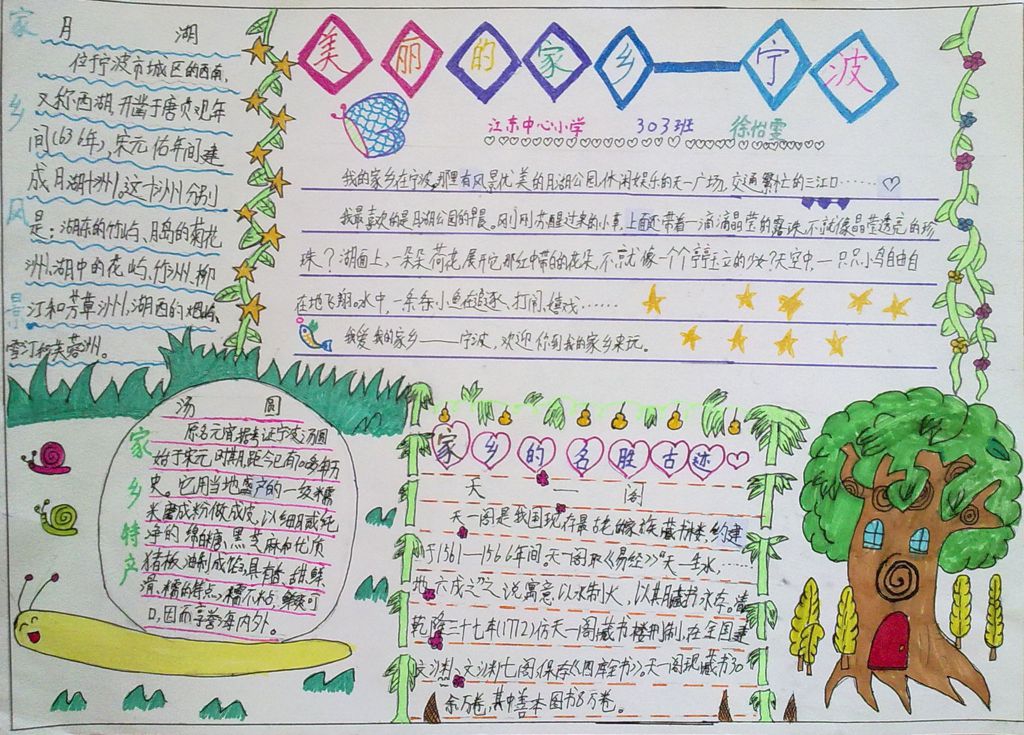 美丽的家乡——宁波
江东中心小学 303班 徐怡雯
我的家乡在宁波,那里有风景优美的月湖公园,休闲娱乐的天一广场,交通繁忙的三江口……
我最喜欢的是月湖公园的早晨。刚刚苏醒过来的小草,上面还带着一滴滴晶莹的露珠,不就像晶莹透亮的珍
珠?湖面上,一朵朵荷花,展开它那红中带的花朵,不就像一个个亭亭玉立的少女?天空中,一只只小鸟自由自
在地飞翔。水中,一条条小鱼在追逐、打闹、嬉戏……
我爱我的家乡——宁波,欢迎你到我的家乡来玩。
家乡风景
月 湖
位于宁波市城区的西南,
又称西湖,开凿于唐贞观年
间(636年),宋元佑年间建
成月湖十洲。这十洲分别
是:湖东的竹屿、月岛的菊花
洲,湖中的花屿、竹洲、柳
汀和芳草洲,湖西的烟屿、
雪汀和芙蓉洲。
家乡特产
汤 圆
原名元宵,据考证宁波汤圆
始于宋元时期,距今已有700多年历
史。它用当地盛产的一级糯
米磨成粉做成皮,以细腻纯
净的绵白糖,黑芝麻和优质
猪板油制成馅,具有香、甜、鲜、
滑、糯的特点,糯不粘,鲜爽可
口,因而享誉海内外。
家乡的名胜古迹
天一阁
天一阁是我国现存最老的家族藏书楼,约建
于1561—1566年间。天一阁取《易经》"天一生水,……
地六成之"之说,寓意以水制火,以其藏书永存。清
乾隆三十七年(1772)仿天一阁藏书楼形制,在全国建
文渊、文渊七阁,保存《四库全书》。天一阁现藏书30
余万卷,其中善本图书8万卷。